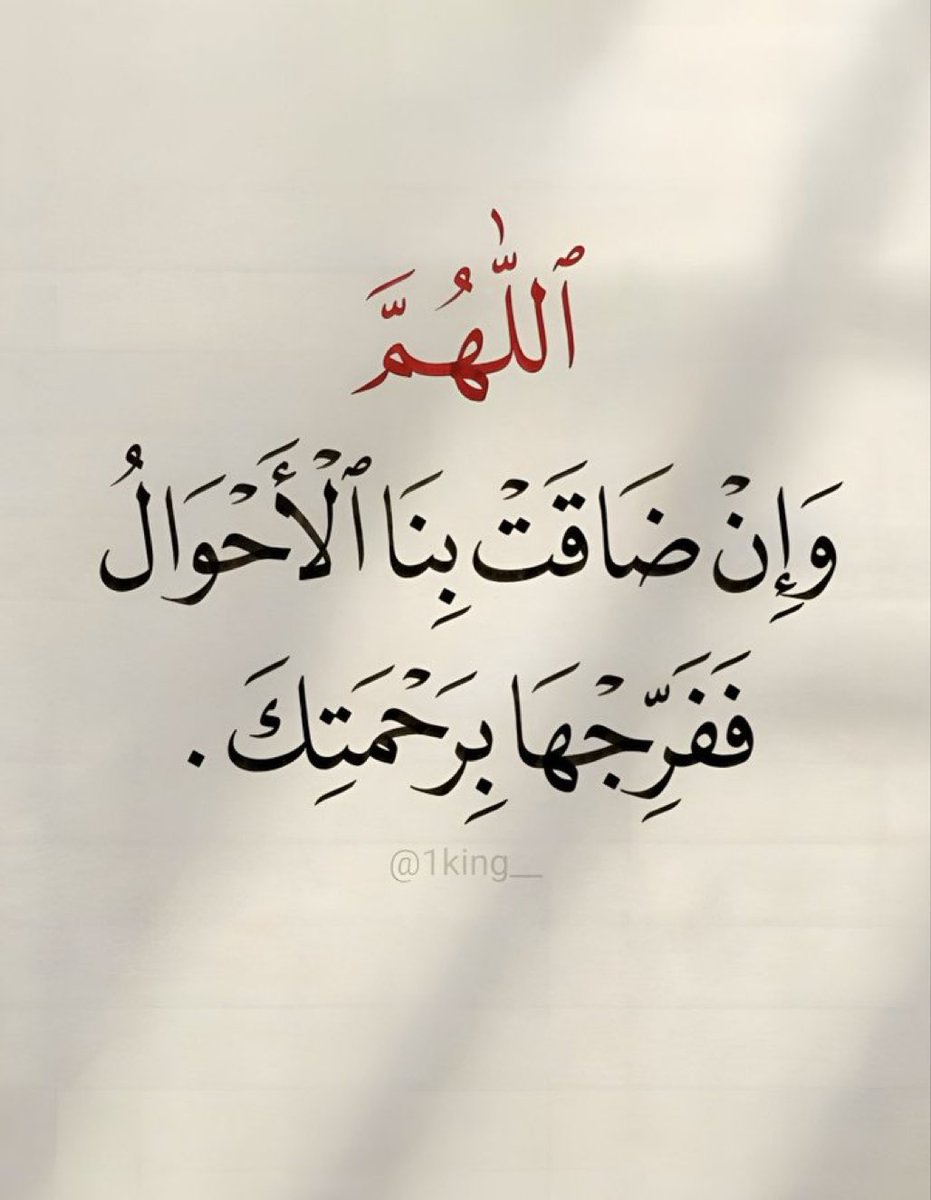 ٱللّٰهُمَّ
وَإِنْ ضَاقَتْ بِنَا ٱلْأَحْوَالُ
فَفَرِّجْهَا بِرَحْمَتِكَ .
@1king__